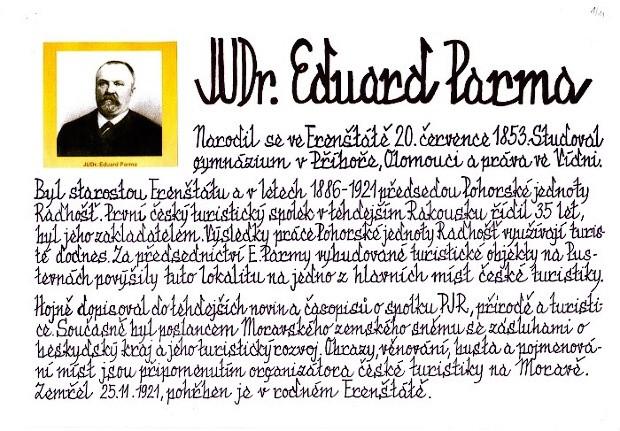 JUDr. Eduard Parma
JUDr. Eduard Parma
Narodil se ve Frenštátě 20. července 1853. Studoval
gymnázium v Příboře, Olomouci a práva ve Vídni.
Byl starostou Frenštátu a v letech 1886-1921 předsedou Pohorské jednoty
Radhošť. První český turistický spolek v tehdejším Rakousku řídil 35 let,
byl jeho zakladatelem. Výsledky práce Pohorské jednoty Radhošť využívají turis-
té dodnes. Za předsednictví E. Parmy vybudované turistické objekty na Pus-
tevnách povýšily tuto lokalitu na jedno z hlavních míst české turistiky.
Hojně dopisoval do tehdejších novin a časopisů o spolku PJR, přírodě a turisti-
ce. Současně byl poslancem Moravského zemského sněmu se zásluhami o
beskydský kraj a jeho turistický rozvoj. Obrazy, věnování, busta a pojmenová-
ní míst jsou připomenutím organizátora české turistiky na Moravě.
Zemřel 25.11.1921, pohřben je v rodném Frenštátě.